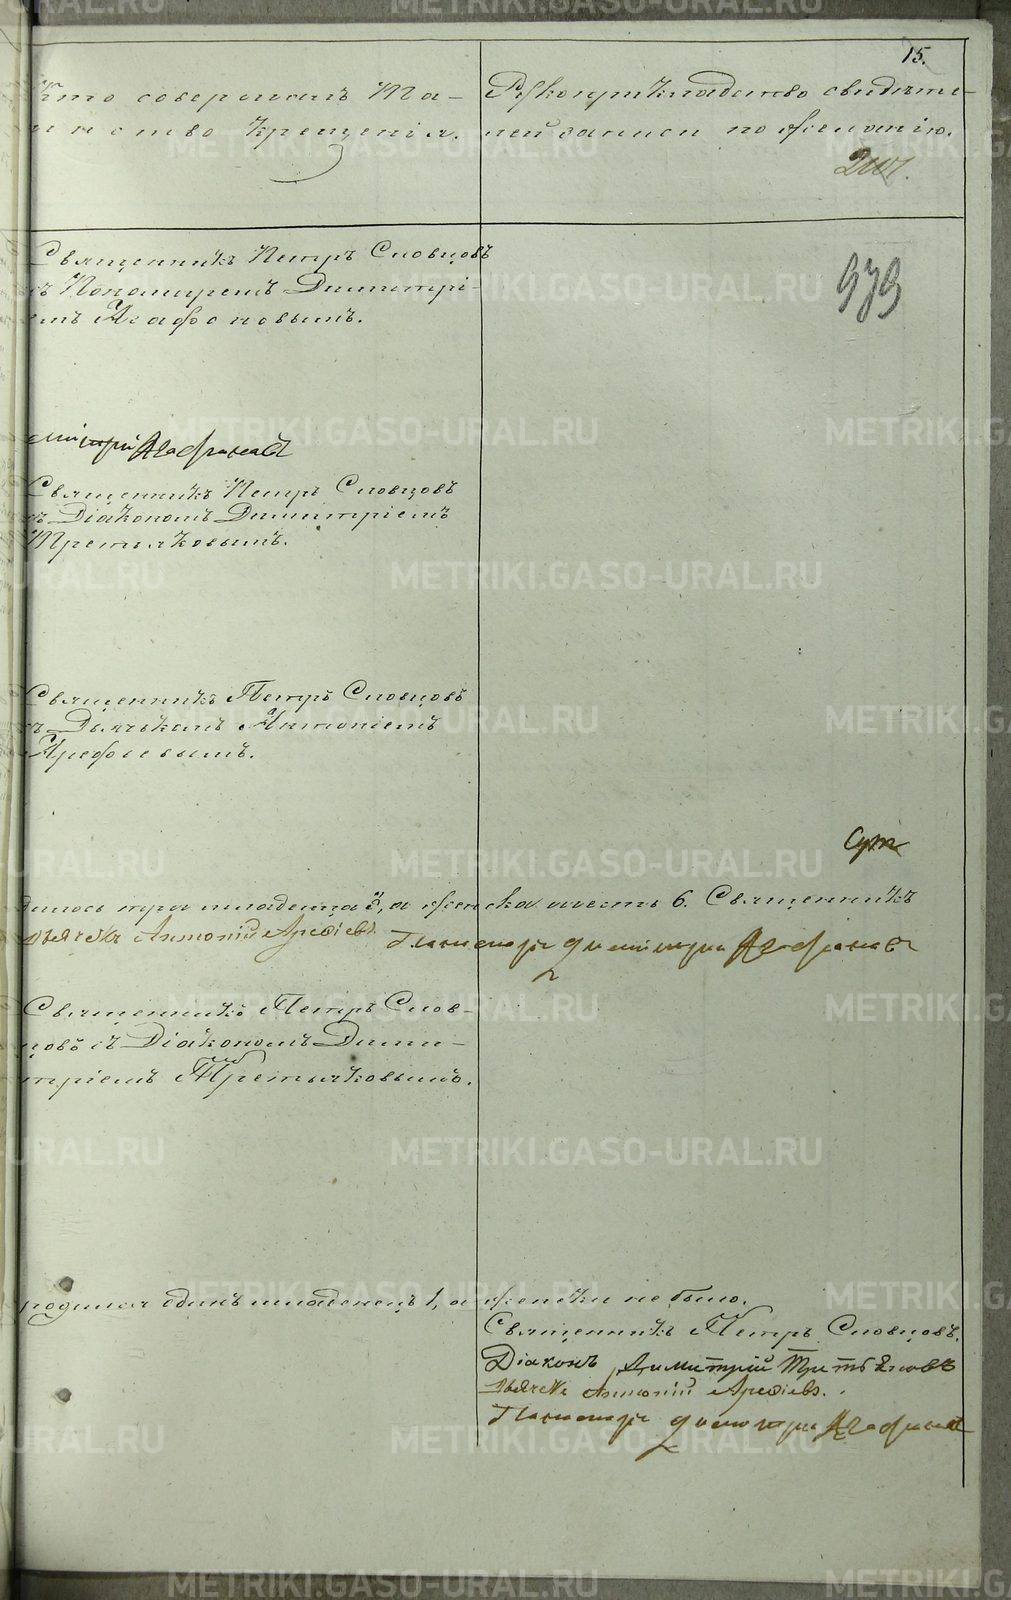 15.
Кто совершалъ Та-
инство крещенія.
Рукоприкладство свидѣте-
лей записи по желанію.
979
Священникъ Петръ Словцовъ
съ Пономаремъ Димитрі-
емъ Агафоновымъ.
Агафоновъ
Священникъ Петръ Словцовъ
съ Діакономъ Димитріемъ
Третьяковымъ.
Священникъ Петръ Словцовъ
съ Дьячкомъ Антоніемъ
Арефьевымъ.
дилось три младенца 3, а женска шесть 6. Священникъ
Дьячекъ Антоній Арефіевъ. Пономарь Димитрій Агафоновъ
Священникъ Петръ Слов-
цовъ съ Діакономъ Дими-
тріемъ Третьяковымъ.
родился одинъ младенецъ 1, а женска не было.
Священникъ Петръ Словцовъ.
Діаконъ Димитрій Третьяковъ
Дьячекъ Антоній Арефіевъ.
Пономарь Димитрій Агафоновъ
METRIKI.GASO-URAL.RU